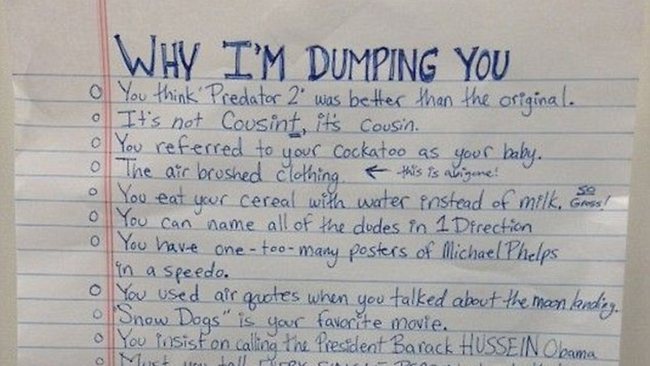 WHY I'M DUMPING YOU
You think 'Predator 2' was better than the original.
It's not Cousint, it's Cousin.
You referred to your Cockatoo as your baby.
The air brushed clothing ← this is a bigone!
You eat your cereal with water instead of milk. SO Gross!
You can name all of the dudes in 1 Direction
You have one-too-many posters of Michael Phelps
in a speedo.
You used air quotes when you talked about the moon landing.
"Snow Dogs" is your favorite movie.
You insist on calling the President Barack HUSSEIN Obama
Must you tell EVERY SINGLE